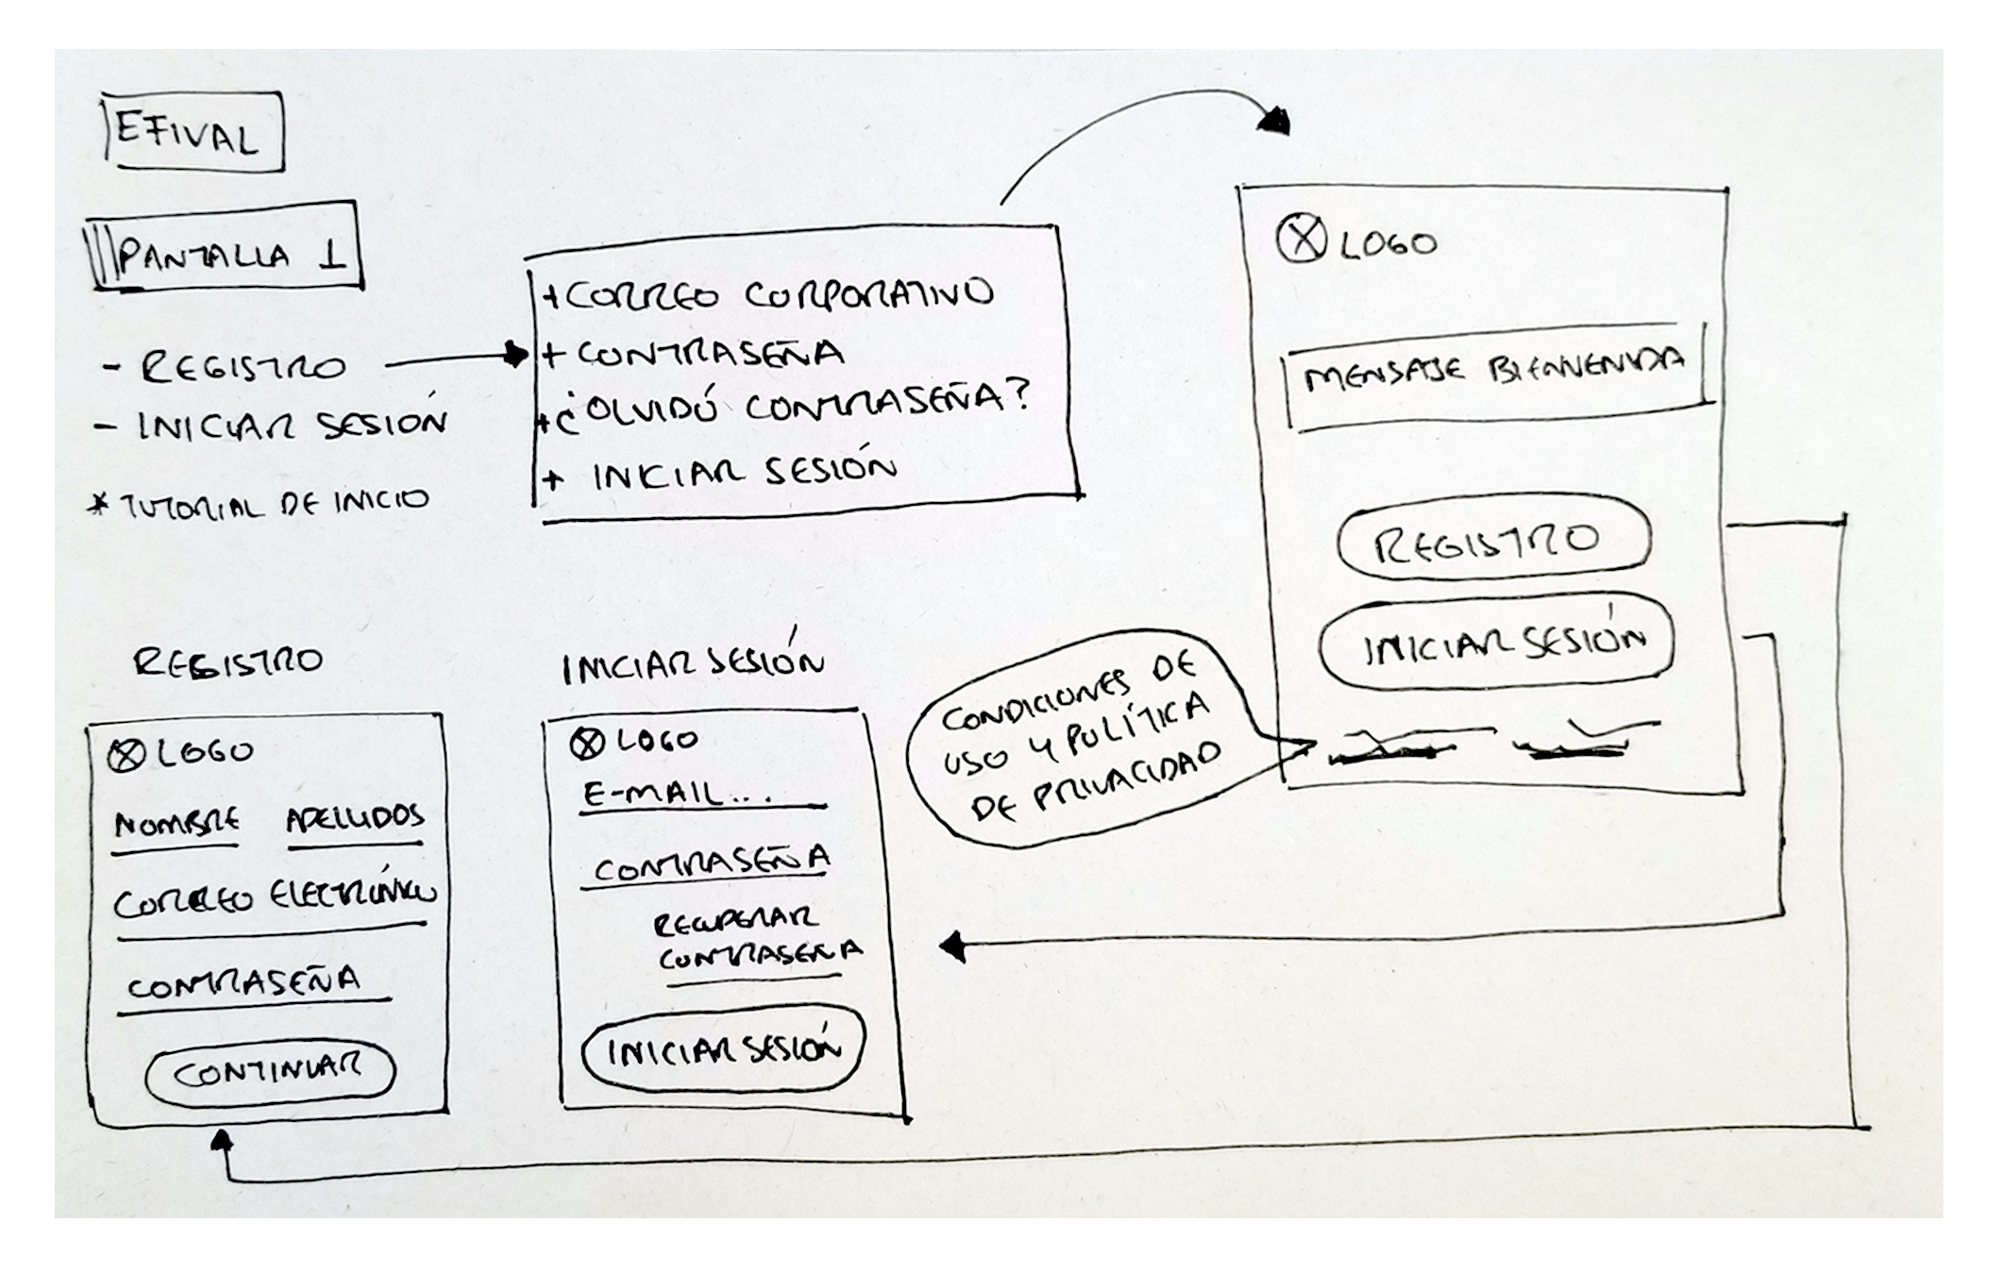 EFIVAL
PANTALLA 1
- REGISTRO
- INICIAR SESIÓN
* TUTORIAL DE INICIO
+ CORREO CORPORATIVO
+ CONTRASEÑA
+ ¿OLVIDÓ CONTRASEÑA?
+ INICIAR SESIÓN
LOGO
MENSAJE BIENVENIDA
REGISTRO
INICIAR SESIÓN
CONDICIONES DE
USO Y POLÍTICA
DE PRIVACIDAD
REGISTRO
LOGO
NOMBRE APELLIDOS
CORREO ELECTRÓNICO
CONTRASEÑA
CONTINUAR
INICIAR SESIÓN
LOGO
E-MAIL...
CONTRASEÑA
RECUPERAR
CONTRASEÑA
INICIAR SESIÓN